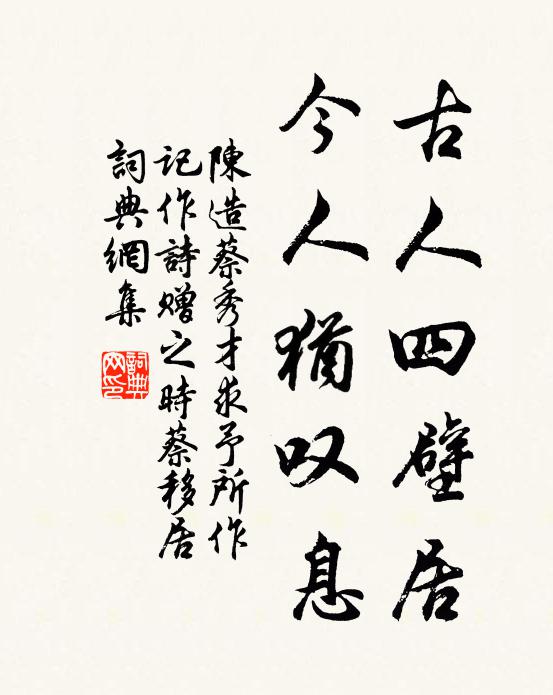 古人四壁居
今人猶叹息
陳造蔡秀才求予所作
記作詩贈之時蔡移居
詞典網集
詞典网印